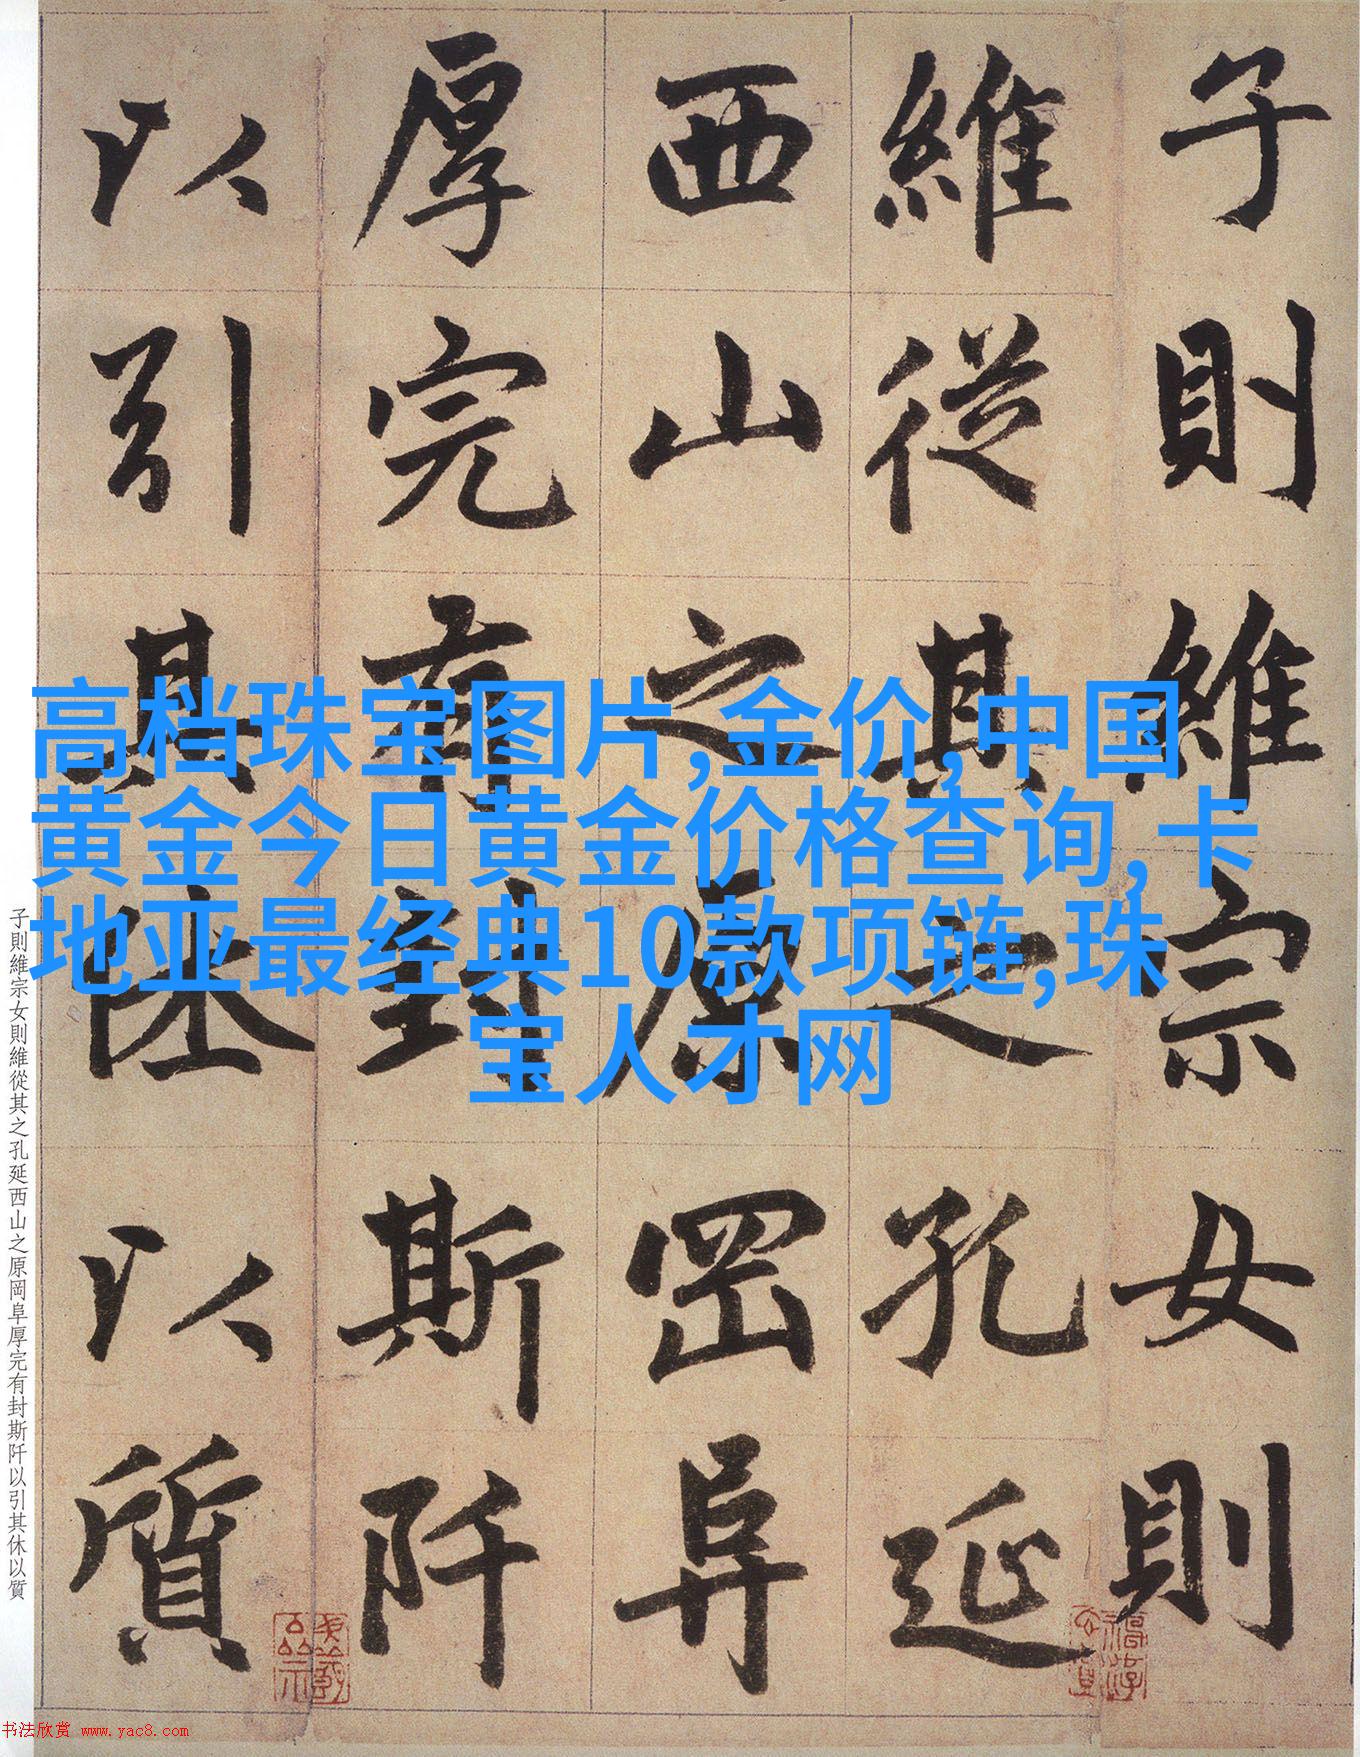 子則維宗女則
維從其之孔延
西山之原岡阜
厚完有封斯阡
以引其休以質
高档珠宝图片,金价,中国
黄金今日黄金价格查询,卡
地亚最经典10款项链,珠
宝人才网
子則維宗女則維從其之孔延西山之原岡阜厚完有封斯阡以引其休以質
书法欣赏 www.yac8.com